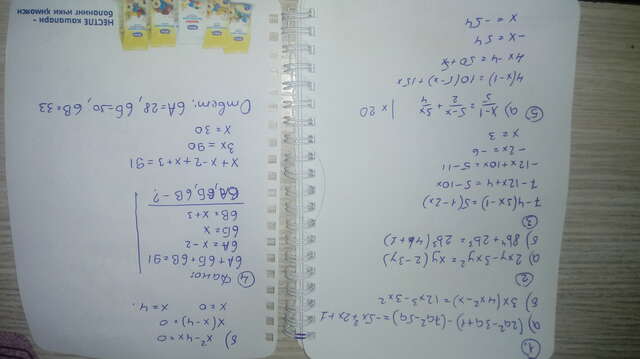 1.
а) (2a²-3a+1)-(7a²-5a)=-5a²+2a+1
б) 3x(4x²-x)=12x³-3x²
2
а) 2xy-3xy²=xy(2-3y)
б) 8b⁴+2b³=2b³(4b+1)
3
7-4(3x-1)=5(1-2x)
7-12x+4=5-10x
-12x+10x=5-11
-2x=-6
x=3
5 а) (x-1)/5=(5-x)/2+5x/4 | x20
4x-4=50+5x
-x=54
x=-54
б) x²-4x=0
x(x-4)=0
x=0 x=4.
4 Дано:
6А+6Б+6В=91
6А=x-2
6Б=x
6В=x+3
6А,6Б,6В-?
x+x-2+x+3=91
3x=90
x=30
Ответ: 6А=28, 6Б=30, 6В=33
НЕСТЛЕ кашалари –
баланинг ички химояси